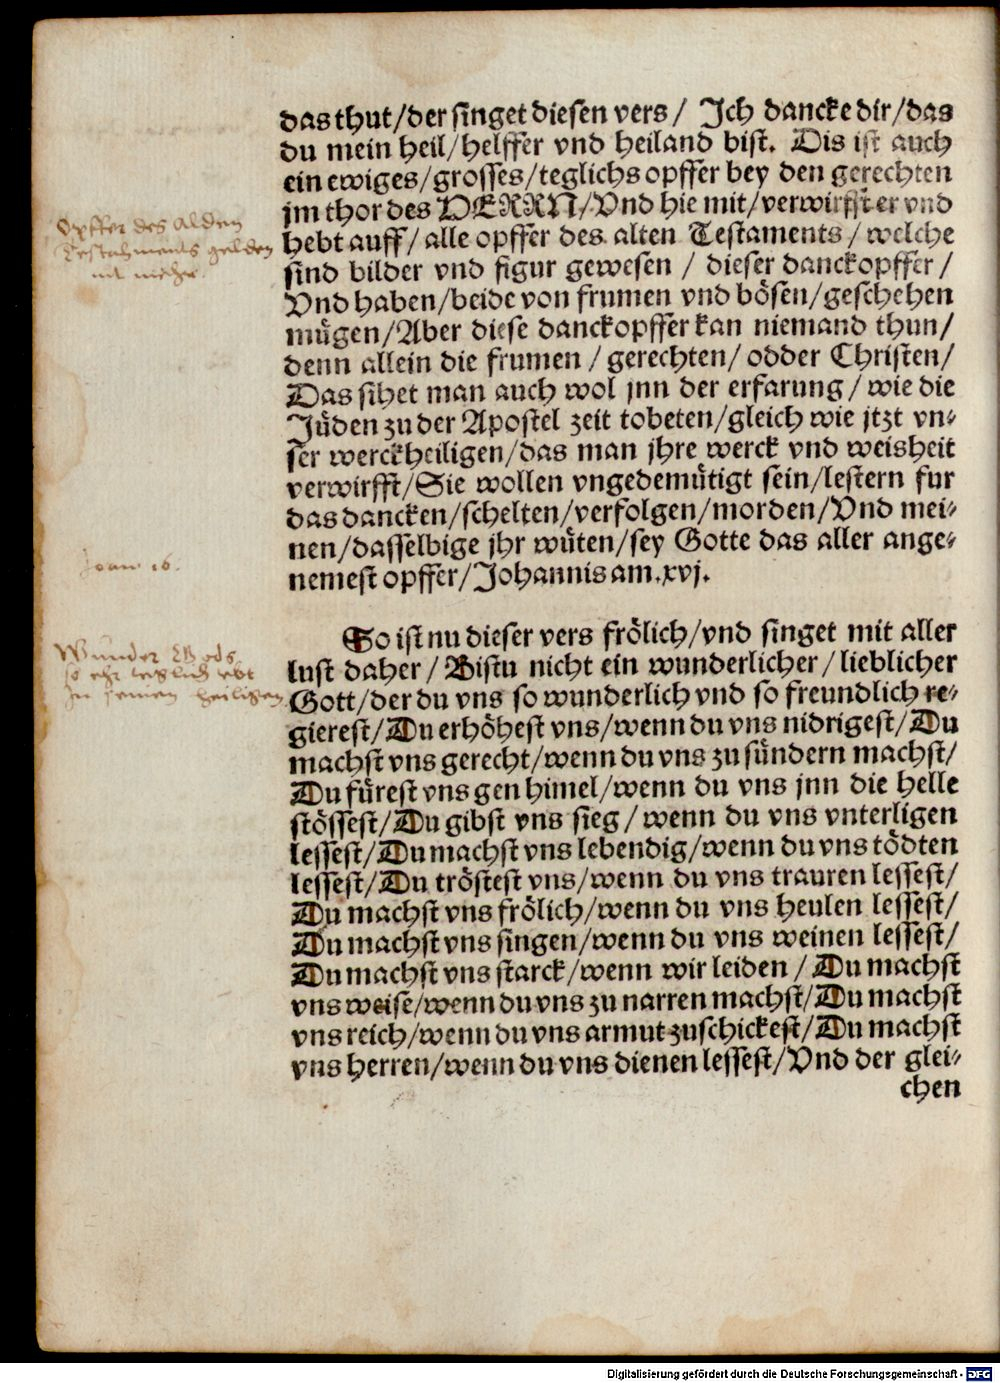 das thut/der singet diesen vers/ Jch dancke dir/das
du mein heil/helffer vnd heiland bist. Dis ist auch
ein ewiges/grosses/teglichs opffer bey den gerechten
jm thor des HERRN/Vnd hie mit/verwirfft er vnd
hebt auff/alle opffer des alten Testaments/welche
sind bilder vnd figur gewesen / dieser danckopffer/
Vnd haben/beide von frumen vnd bösen/geschehen
mügen/Aber diese danckopffer kan niemand thun/
denn allein die frumen/gerechten/odder Christen/
Das sihet man auch wol jnn der erfarung/wie die
Jüden zu der Apostel zeit tobeten/gleich wie jtzt vn-
ser werckheiligen/das man jhre werck vnd weisheit
verwirfft/Sie wollen vngedemütigt sein/lestern fur
das dancken/schelten/verfolgen/morden/Vnd mei-
nen/dasselbige jhr wüten/sey Gotte das aller ange-
nemest opffer/Johannis am.xvj.
So ist nu dieser vers frölich/vnd singet mit aller
lust daher/Bistu nicht ein wunderlicher/lieblicher
Gott/der du vns so wunderlich vnd so freundlich re-
gierest/Du erhöhest vns/wenn du vns nidrigest/Du
machst vns gerecht/wenn du vns zu sündern machst/
Du fürest vns gen himel/wenn du vns jnn die helle
stössest/Du gibst vns sieg/wenn du vns vnterligen
lessest/Du machst vns lebendig/wenn du vns tödten
lessest/Du tröstest vns/wenn du vns trauren lessest/
Du machst vns frölich/wenn du vns heulen lessest/
Du machst vns singen/wenn du vns weinen lessest/
Du machst vns starck/wenn wir leiden/Du machst
vns weise/wenn du vns zu narren machst/Du machst
vns reich/wenn du vns armut zuschickest/Du machst
vns herren/wenn du vns dienen lessest/Vnd der glei-
chen
Opffer des Alden
Testahments gelden
nit mehr.
Joan 16.
Wunder Gods
so ehr teglich
In seinen heiligen
Digitalisierung gefördert durch die Deutsche Forschungsgemeinschaft - DFG